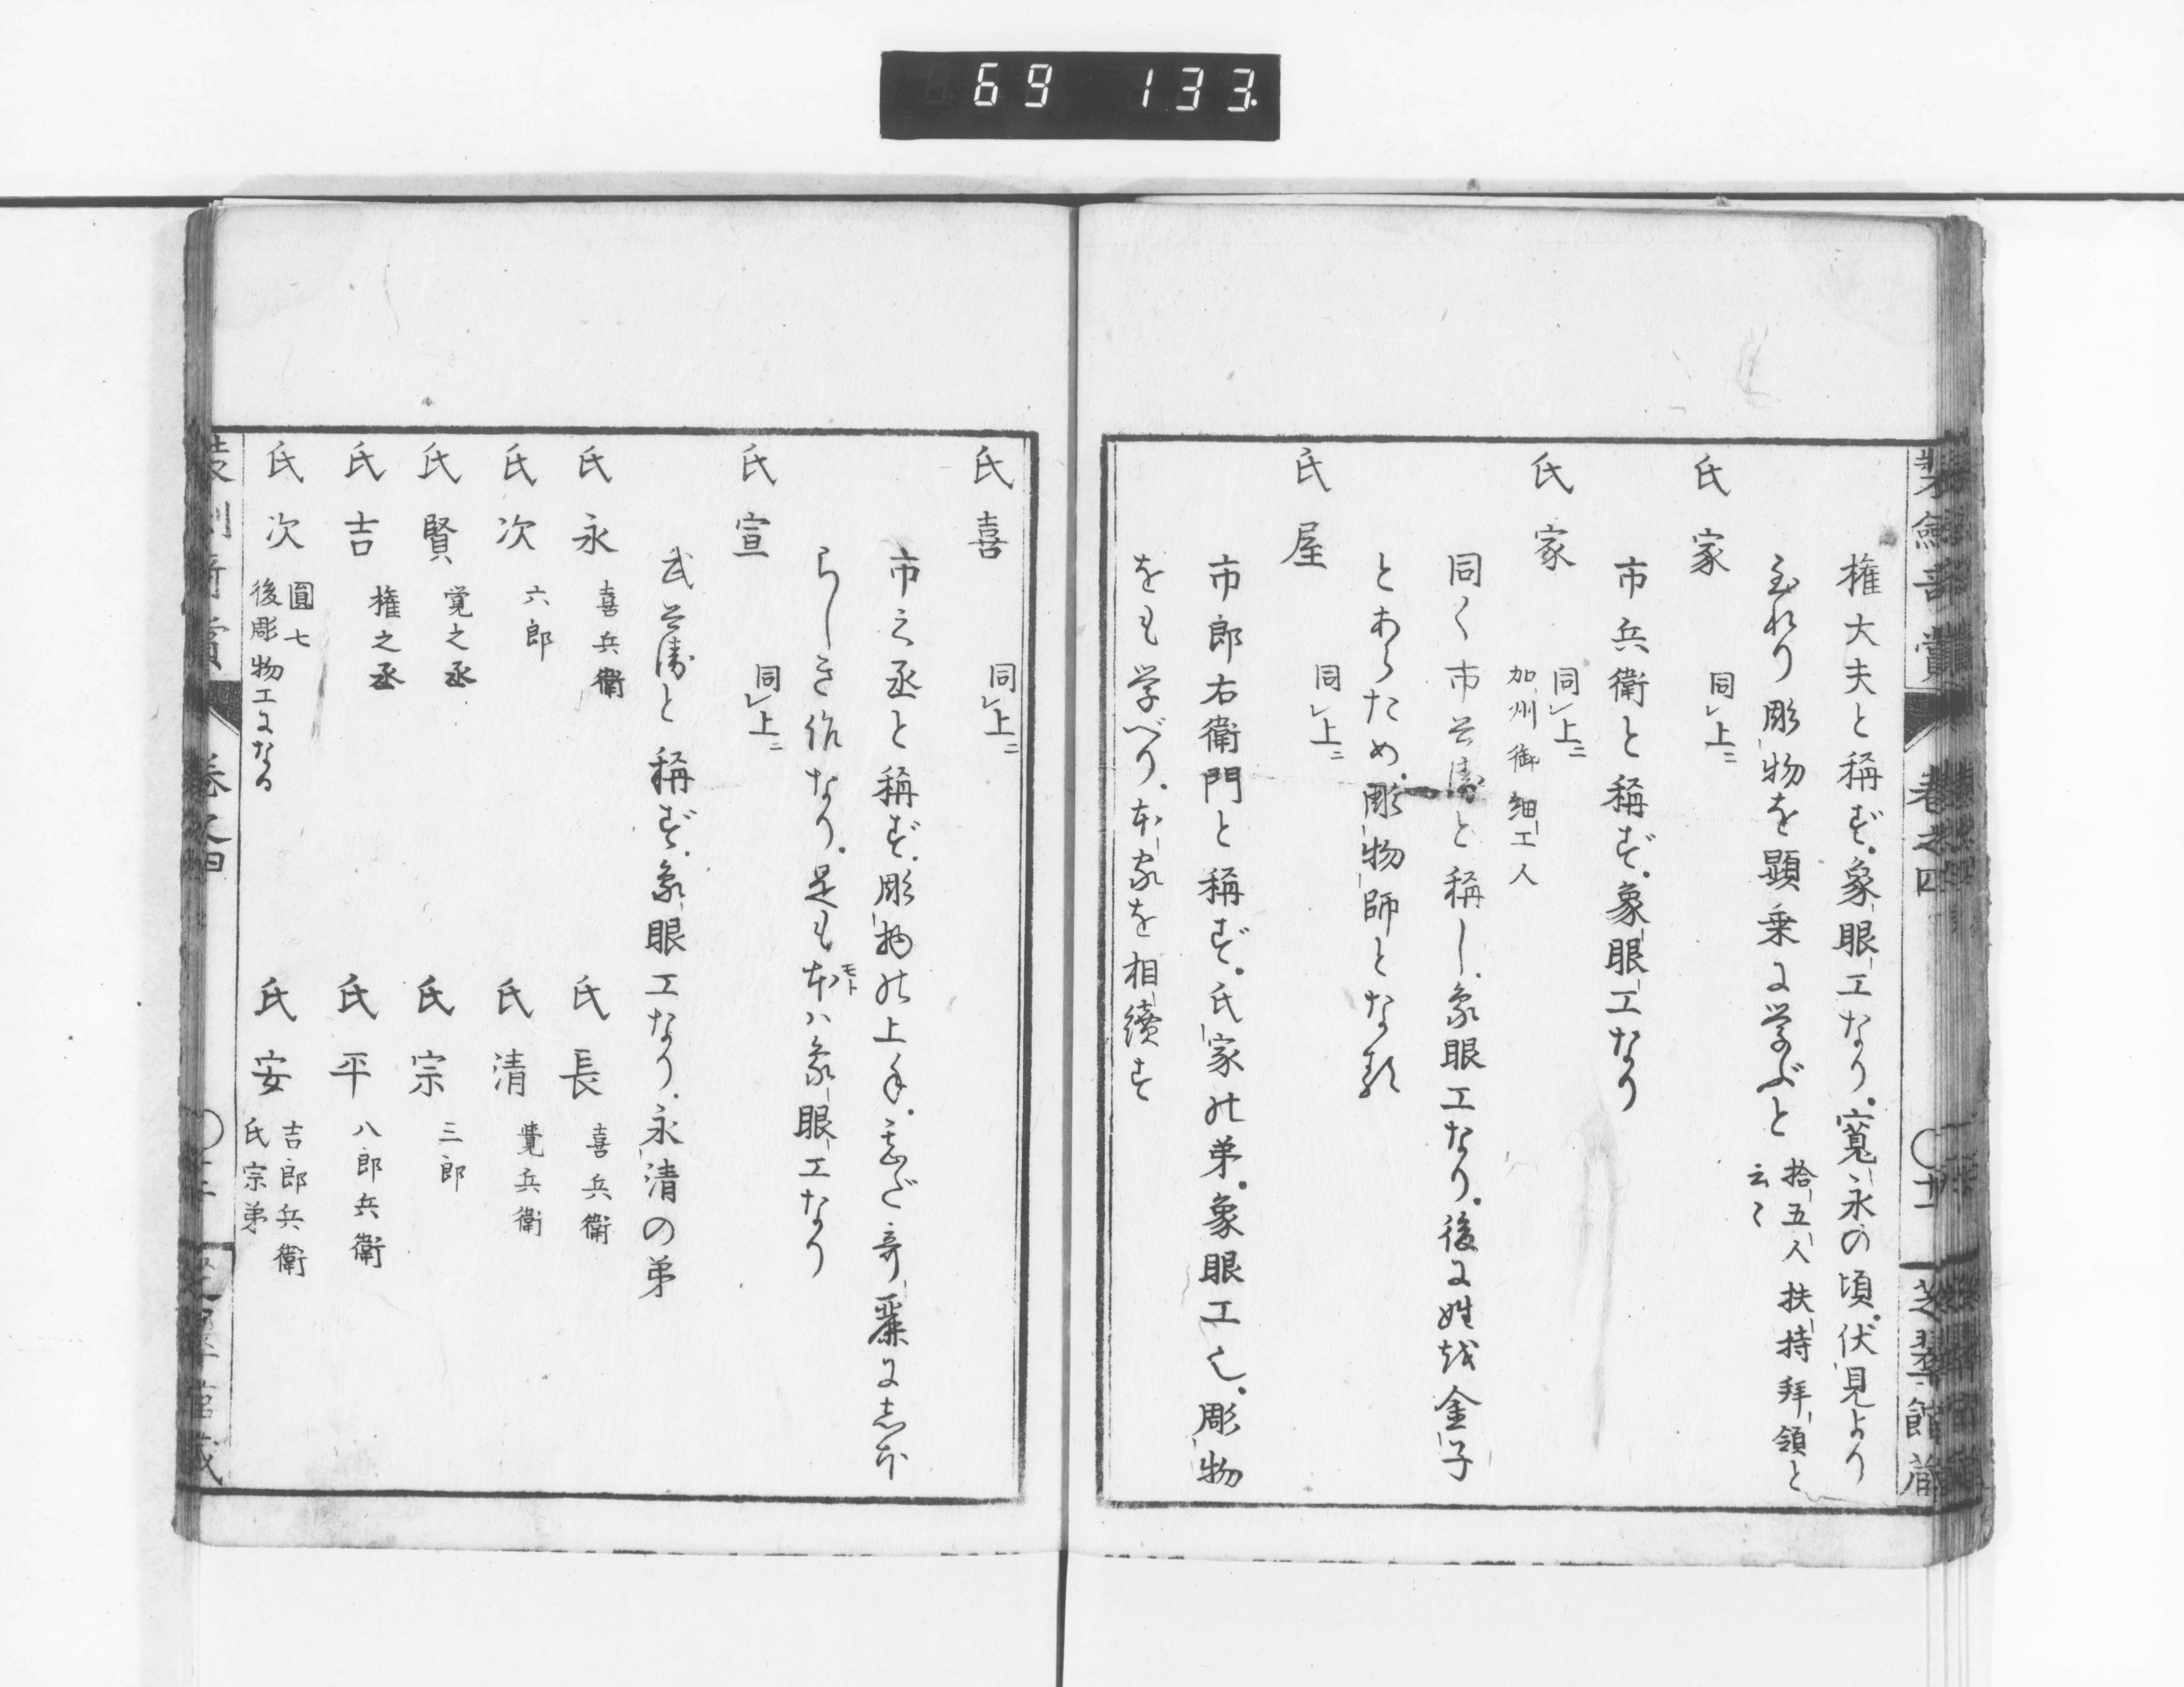 69 133
装劔奇賞 巻之四 〇十一 芝翠館蔵
権大夫と稱ず。象眼工なり。寛永の頃。伏見より
至れり彫物を顕乗に学ぶと 拾五人扶持拜領と
云々
氏家 同レ上ニ
市兵衛と稱ず。象眼工なり
氏家 同レ上ニ
加州御細工人
同く市兵衛と稱し。象眼工なり。後に姓越金子
とあらため。彫物師となる
氏屋 同レ上ニ
市郎右衛門と稱ず。氏家の弟。象眼工也。彫物
をも学べり。本家を相續す
氏喜 同レ上ニ
市之丞と稱ず。彫物の上手。甚だ奇麗にしほ
らしき作なり。是も本ハ象眼工なり
モト
氏宣 同レ上ニ
武兵衛と稱ず。象眼工なり。永清の弟
氏永 喜兵衛
氏長 喜兵衛
氏次 六郎
氏清 覺兵衛
氏賢 覚之丞
氏宗 三郎
氏吉 権之丞
氏平 八郎兵衛
氏次 圓七
後彫物工になる
氏安 吉郎兵衛
氏宗弟
巻之四